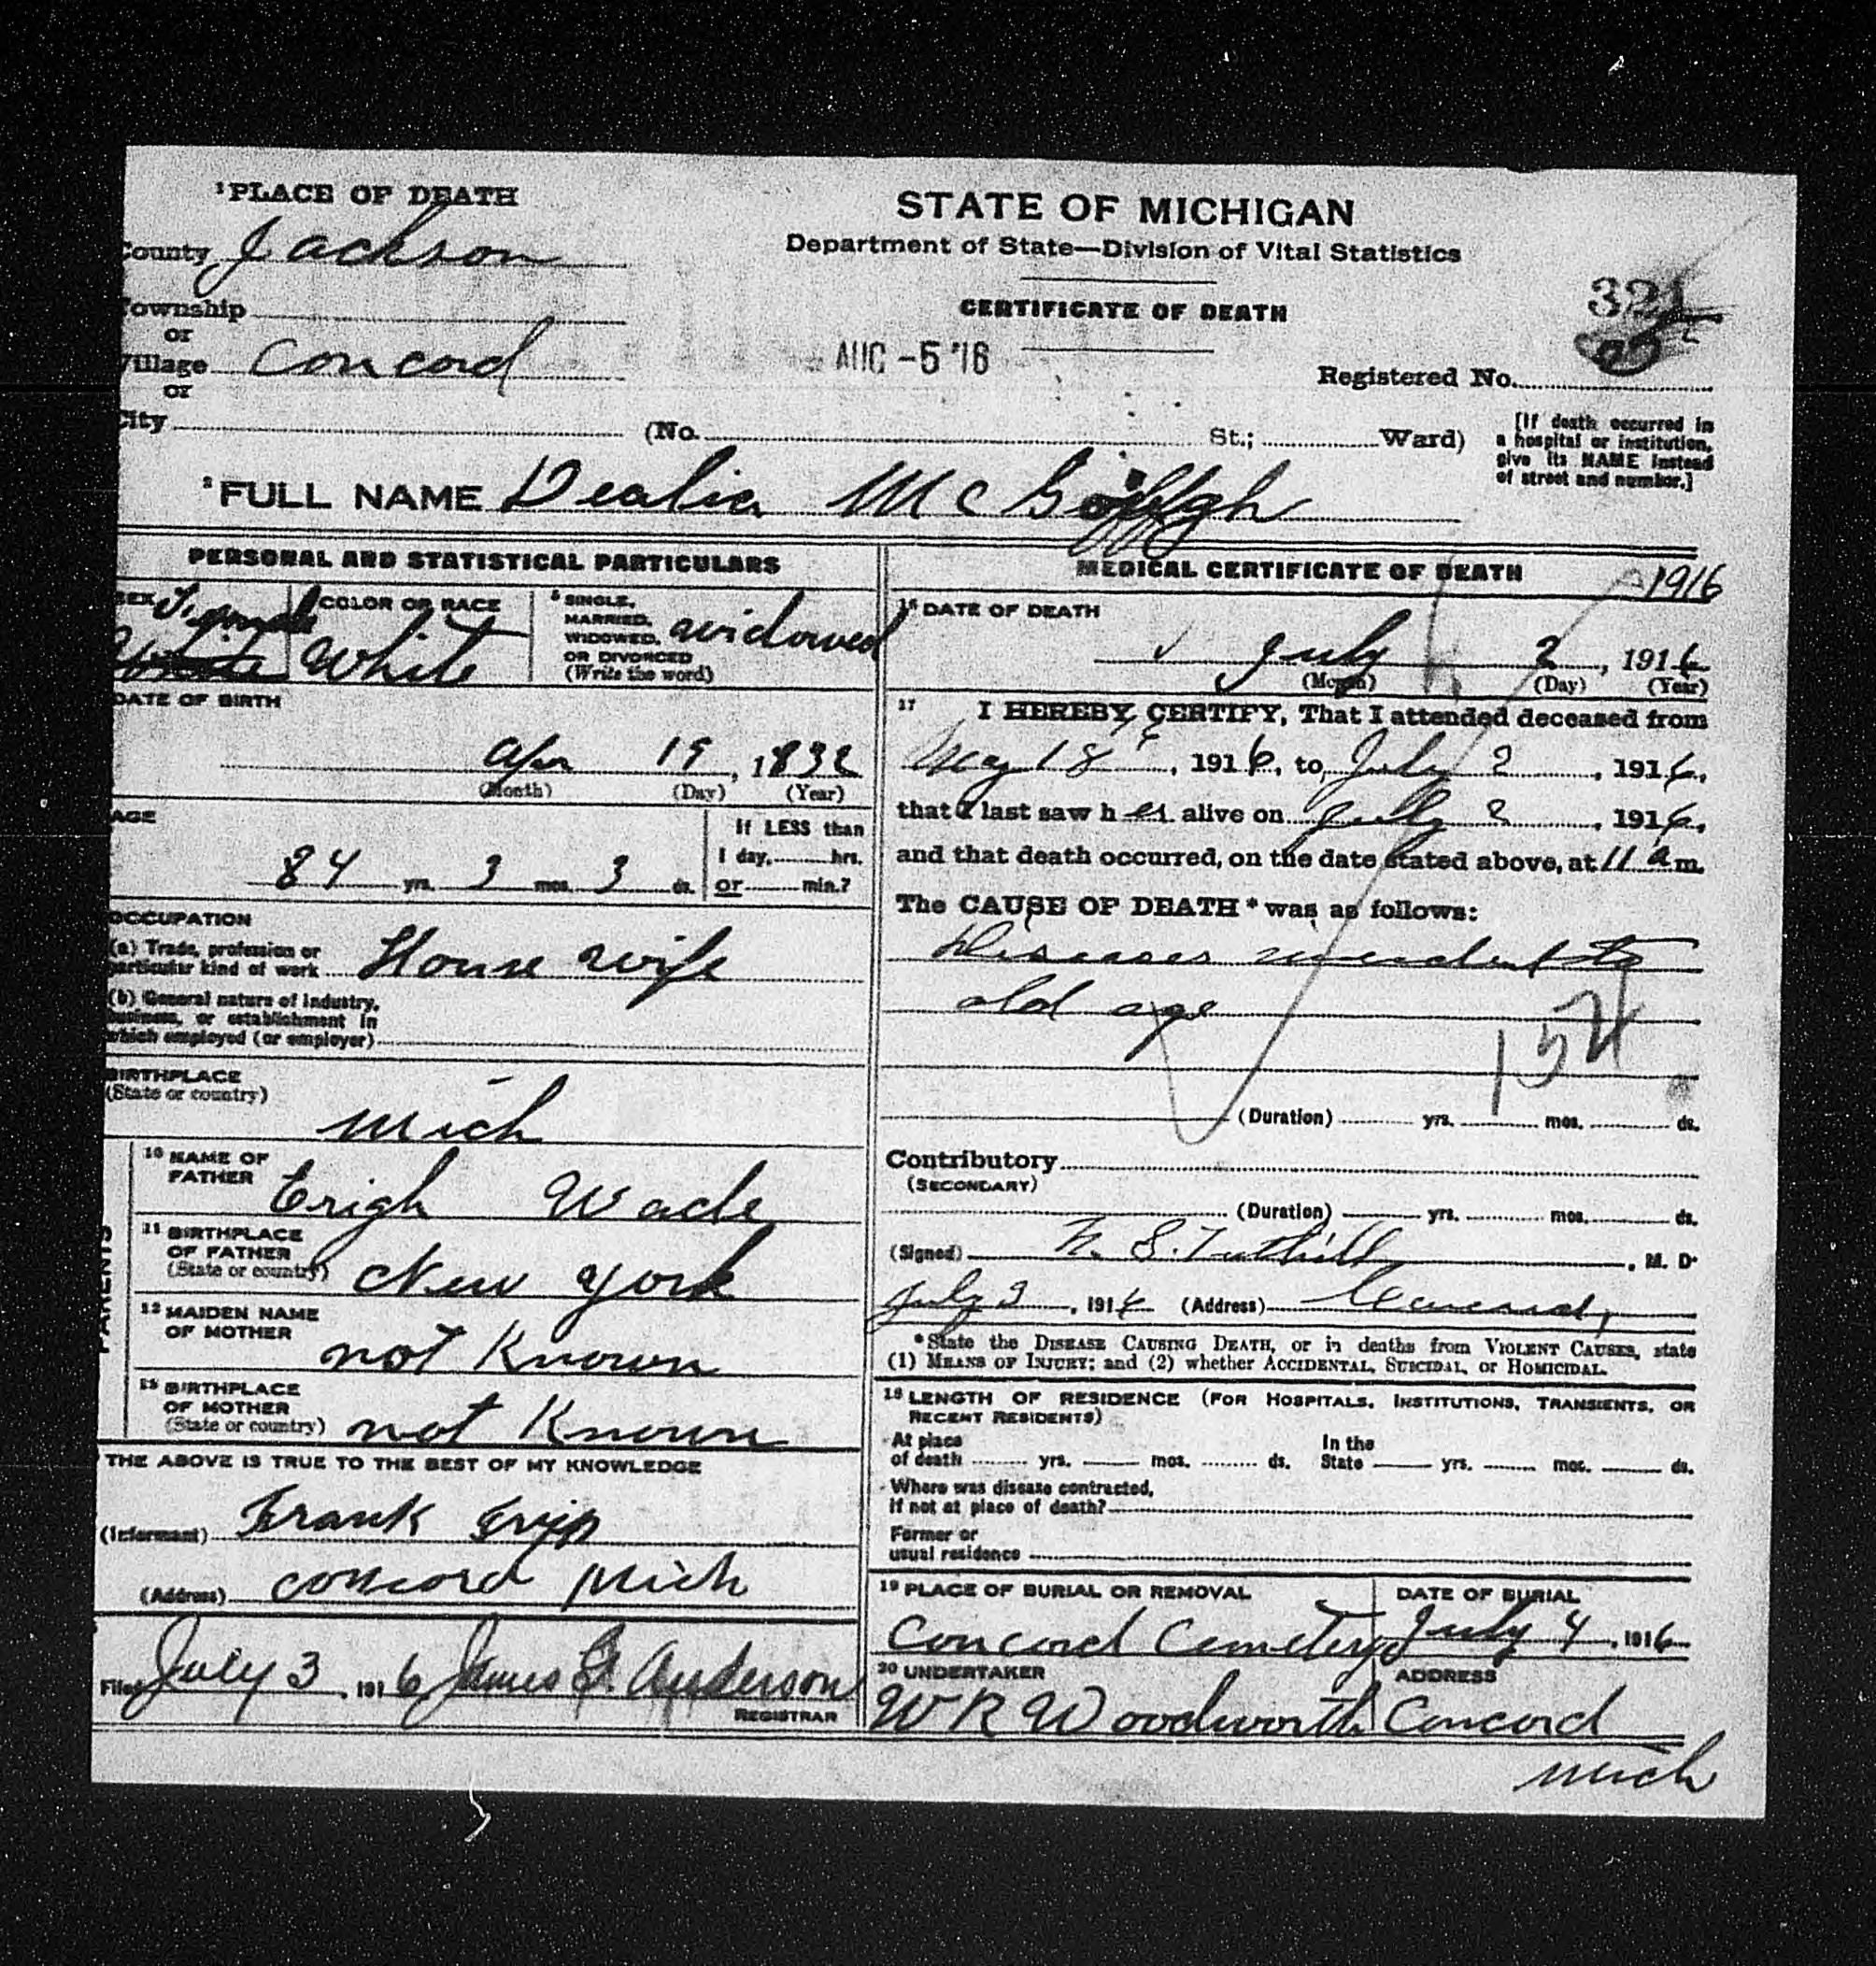 1 PLACE OF DEATH
County Jackson
Township
or
Village Concord
or
City (No. St.; Ward)
STATE OF MICHIGAN
Department of State—Division of Vital Statistics
CERTIFICATE OF DEATH
AUG -5 '16
Registered No.
[If death occurred in
a hospital or institution,
give its NAME instead
of street and number.]
2 FULL NAME Dealia
PERSONAL AND STATISTICAL PARTICULARS
SEX Female
COLOR OR RACE
White
5 SINGLE,
MARRIED,
WIDOWED,
OR DIVORCED
(Write the word)
widowed
DATE OF BIRTH
Apr 19, 1832
(Month) (Day) (Year)
AGE
84 yrs. 3 mos. 3 ds.
If LESS than
1 day, hrs.
or min.?
OCCUPATION
(a) Trade, profession or
particular kind of work House wife
(b) General nature of industry,
business, or establishment in
which employed (or employer)
BIRTHPLACE
(State or country)
Mich
PARENTS
10 NAME OF
FATHER
Wade
11 BIRTHPLACE
OF FATHER
(State or country) New York
12 MAIDEN NAME
OF MOTHER
not Known
13 BIRTHPLACE
OF MOTHER
(State or country) not Known
THE ABOVE IS TRUE TO THE BEST OF MY KNOWLEDGE
(Informant) Frank
(Address) Concord Mich
Filed July 3, 1916 James G. Anderson
REGISTRAR
MEDICAL CERTIFICATE OF DEATH
1916
16 DATE OF DEATH
July 2, 1916
(Month) (Day) (Year)
17 I HEREBY CERTIFY, That I attended deceased from
May 18, 1916, to July 2, 1916,
that I last saw her alive on July 2, 1916,
and that death occurred, on the date stated above, at 11 a m.
The CAUSE OF DEATH* was as follows:
Diseases incident to
old age
154
(Duration) yrs. mos. ds.
Contributory
(SECONDARY)
(Duration) yrs. mos. ds.
(Signed) Tuthill, M. D.
July 3, 1916 (Address) Concord,
*State the DISEASE CAUSING DEATH, or in deaths from VIOLENT CAUSES, state
(1) MEANS OF INJURY; and (2) whether ACCIDENTAL, SUICIDAL, or HOMICIDAL.
18 LENGTH OF RESIDENCE (FOR HOSPITALS, INSTITUTIONS, TRANSIENTS, OR
RECENT RESIDENTS)
At place
of death yrs. mos. ds.
In the
State yrs. mos. ds.
Where was disease contracted,
if not at place of death?
Former or
usual residence
19 PLACE OF BURIAL OR REMOVAL
Concord Cemetery
DATE OF BURIAL
July 4, 1916
20 UNDERTAKER
W R Woodworth
ADDRESS
Concord
Mich